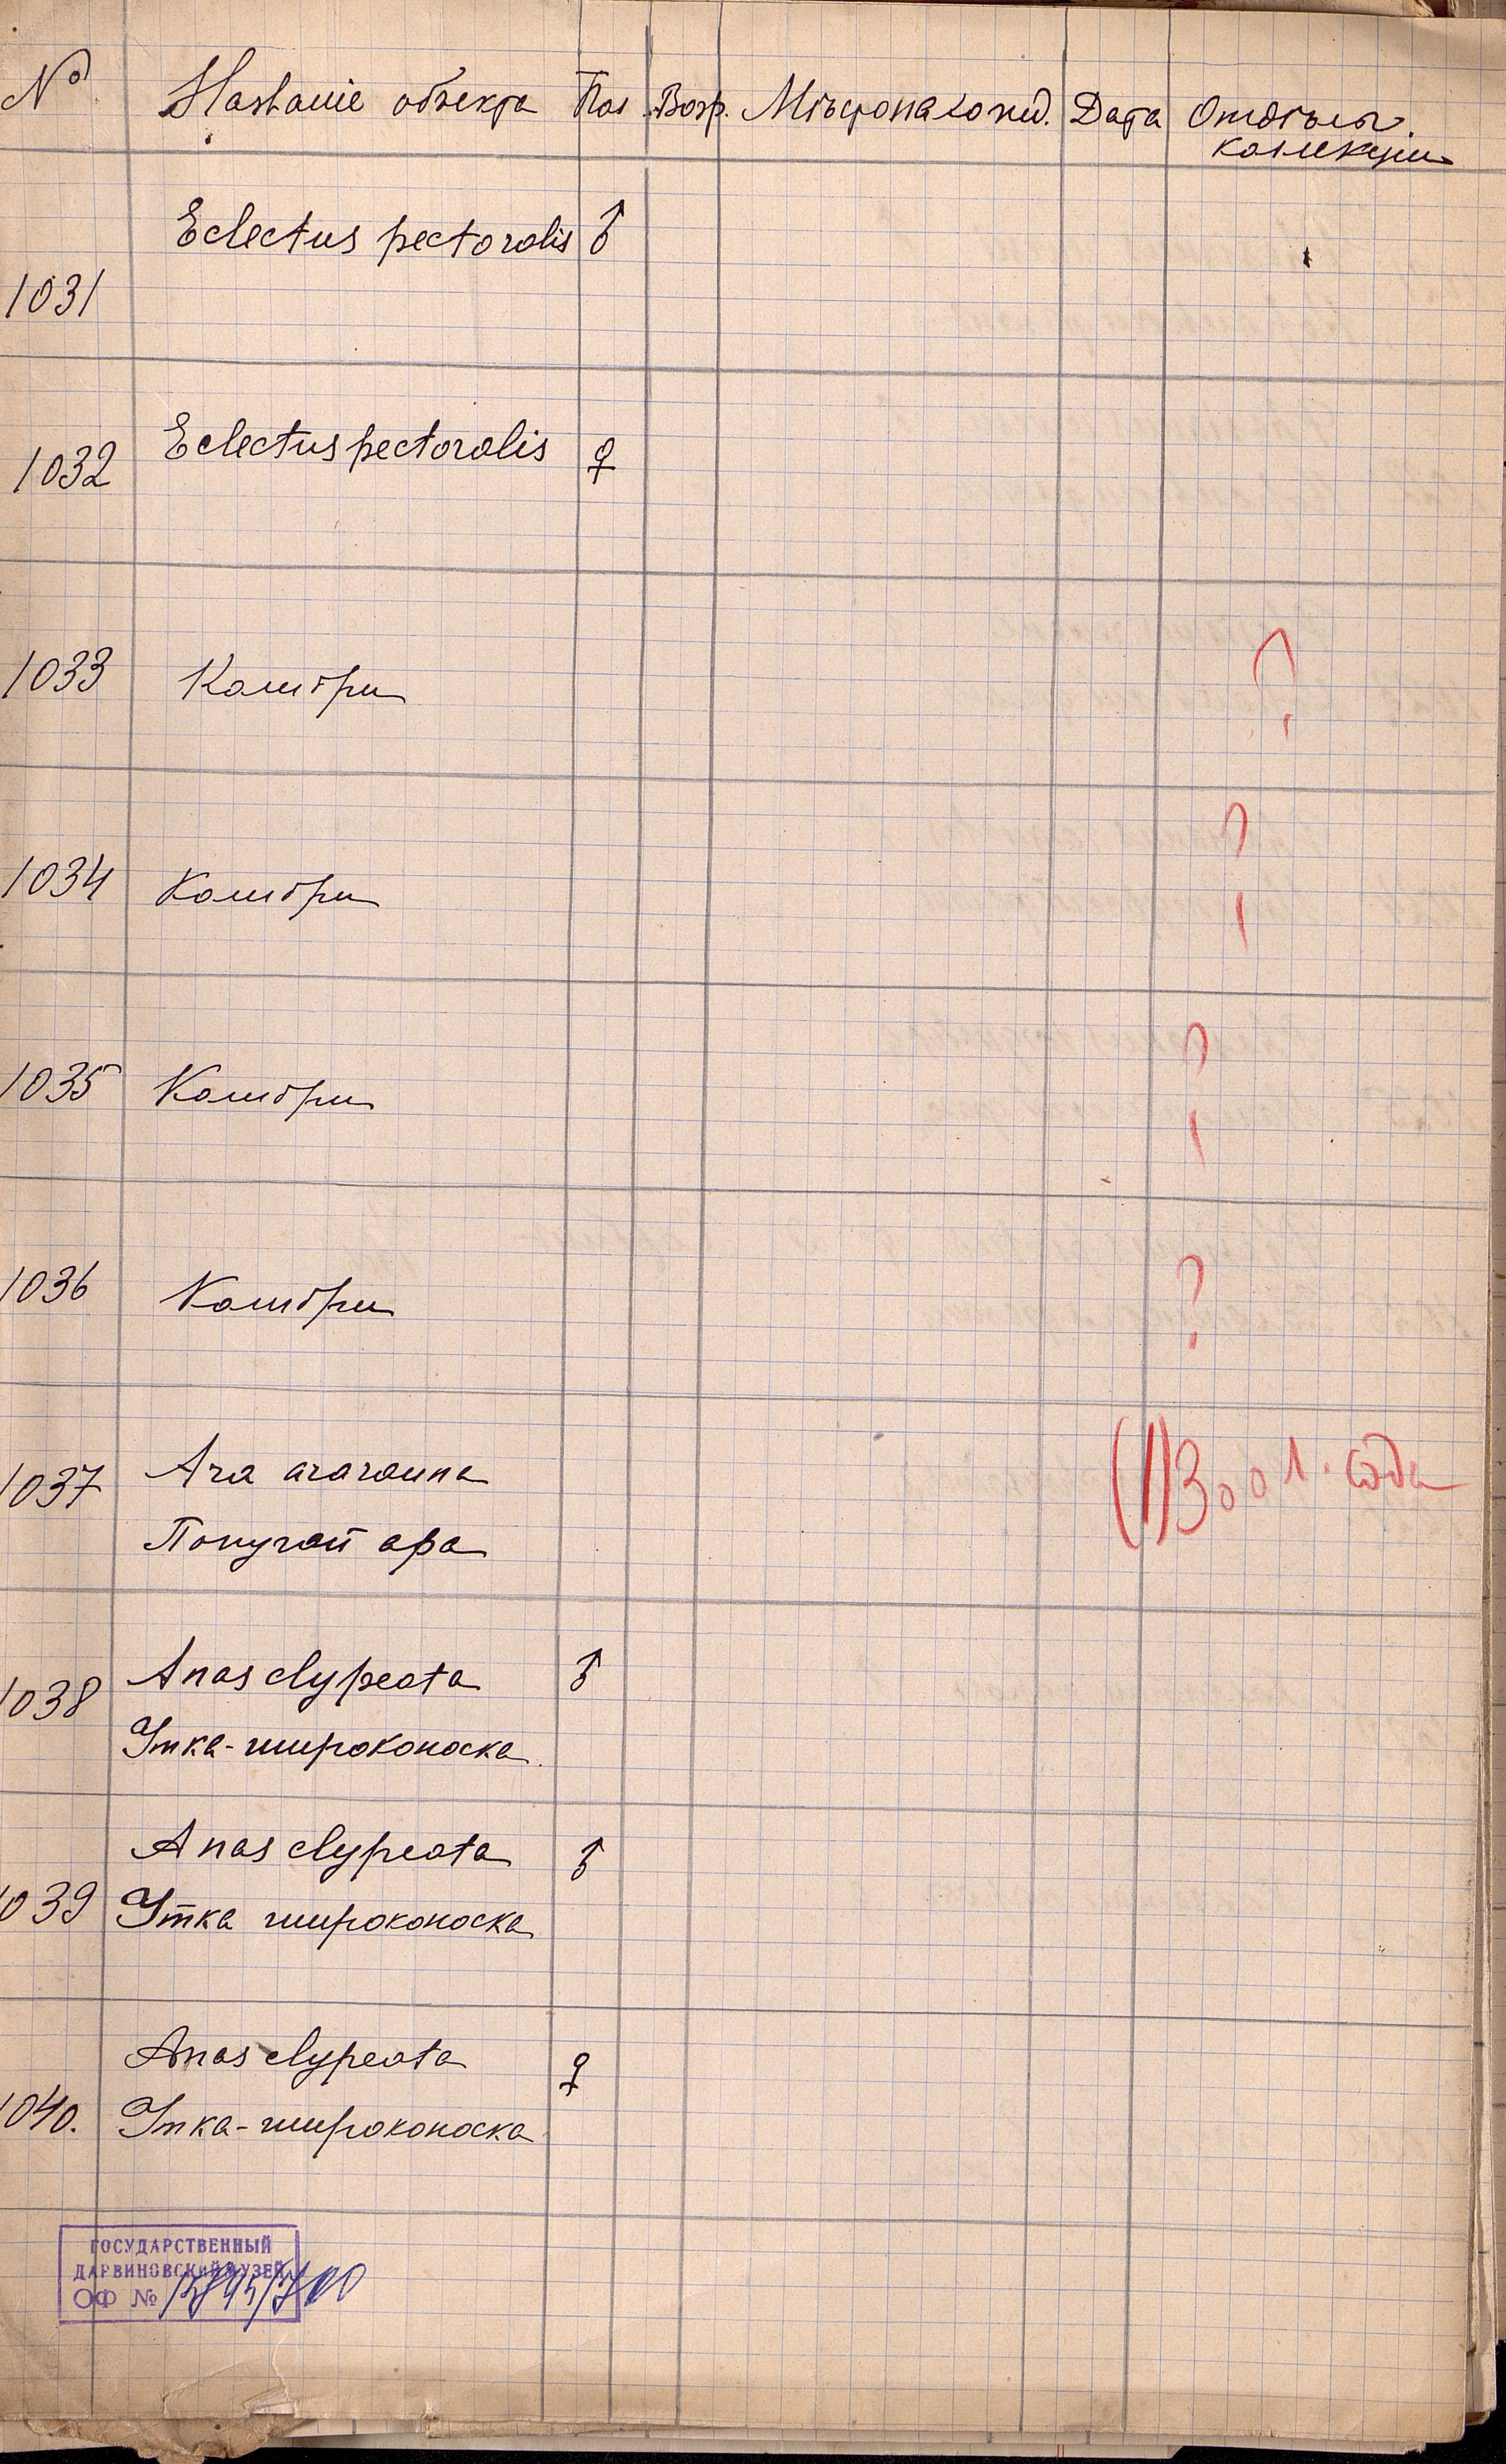 № Названіе объекта Пол Возр. Мѣстонахожд. Дата Отдѣлы
коллекціи
Eclectus pectoralis ♂
1031
1032 Eclectus pectoralis ♀
1033 Колибри ?
1034 Колибри ?
1035 Колибри ?
1036 Колибри ?
1037 Ara ararauna (1) Зоол. сада
Попугай ара
1038 Anas clypeata ♂
Утка-широконоска
Anas clypeata ♂
1039 Утка широконоска
Anas clypeata ♀
1040. Утка-широконоска
ГОСУДАРСТВЕННЫЙ
ДАРВИНОВСКИЙ МУЗЕЙ
ОФ №